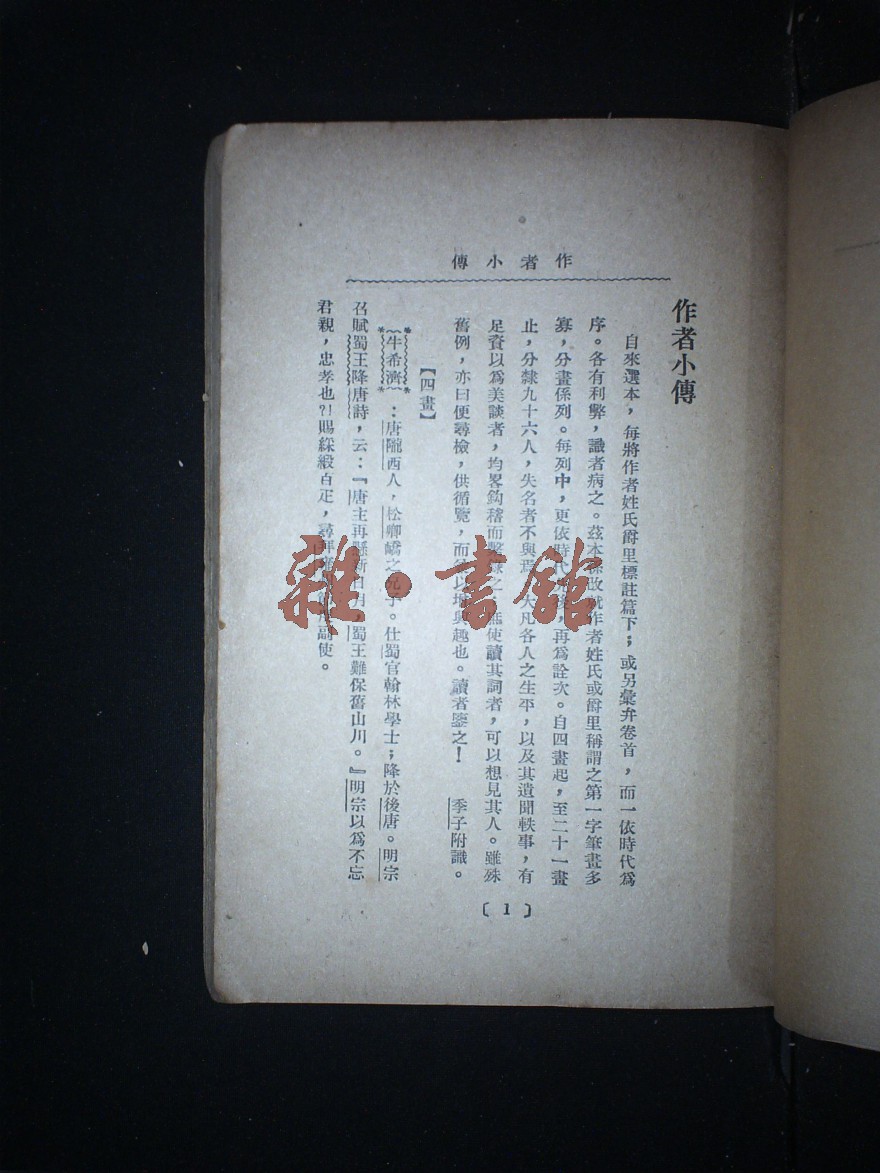 作者小傳
作者小傳
自來選本，每將作者姓氏爵里標註篇下；或另彙弁卷首，而一依時代爲
序。各有利弊，識者病之。茲本係改就作者姓氏或爵里稱謂之第一字筆畫多
寡，分畫係列。每列中，更依時代先後，再爲詮次。自四畫起，至二十一畫
止，分隸九十六人，失名者不與焉。大凡各人之生平，以及其遺聞軼事，有
足資以爲美談者，均畧鈎稽而之。使讀其詞者，可以想見其人。雖殊
舊例，亦曰便尋檢，供循覽，而以增興趣也。讀者鑒之！ 季子附識。
【四畫】
牛希濟：唐隴西人，松卿嶠之兄子。仕蜀官翰林學士；降於後唐。明宗
召賦蜀王降唐詩，云：『唐主再懸新日月，蜀王難保舊山川。』明宗以爲不忘
君親，忠孝也?!賜綵緞百疋，尋拜副使。
〔1〕
雜·書館